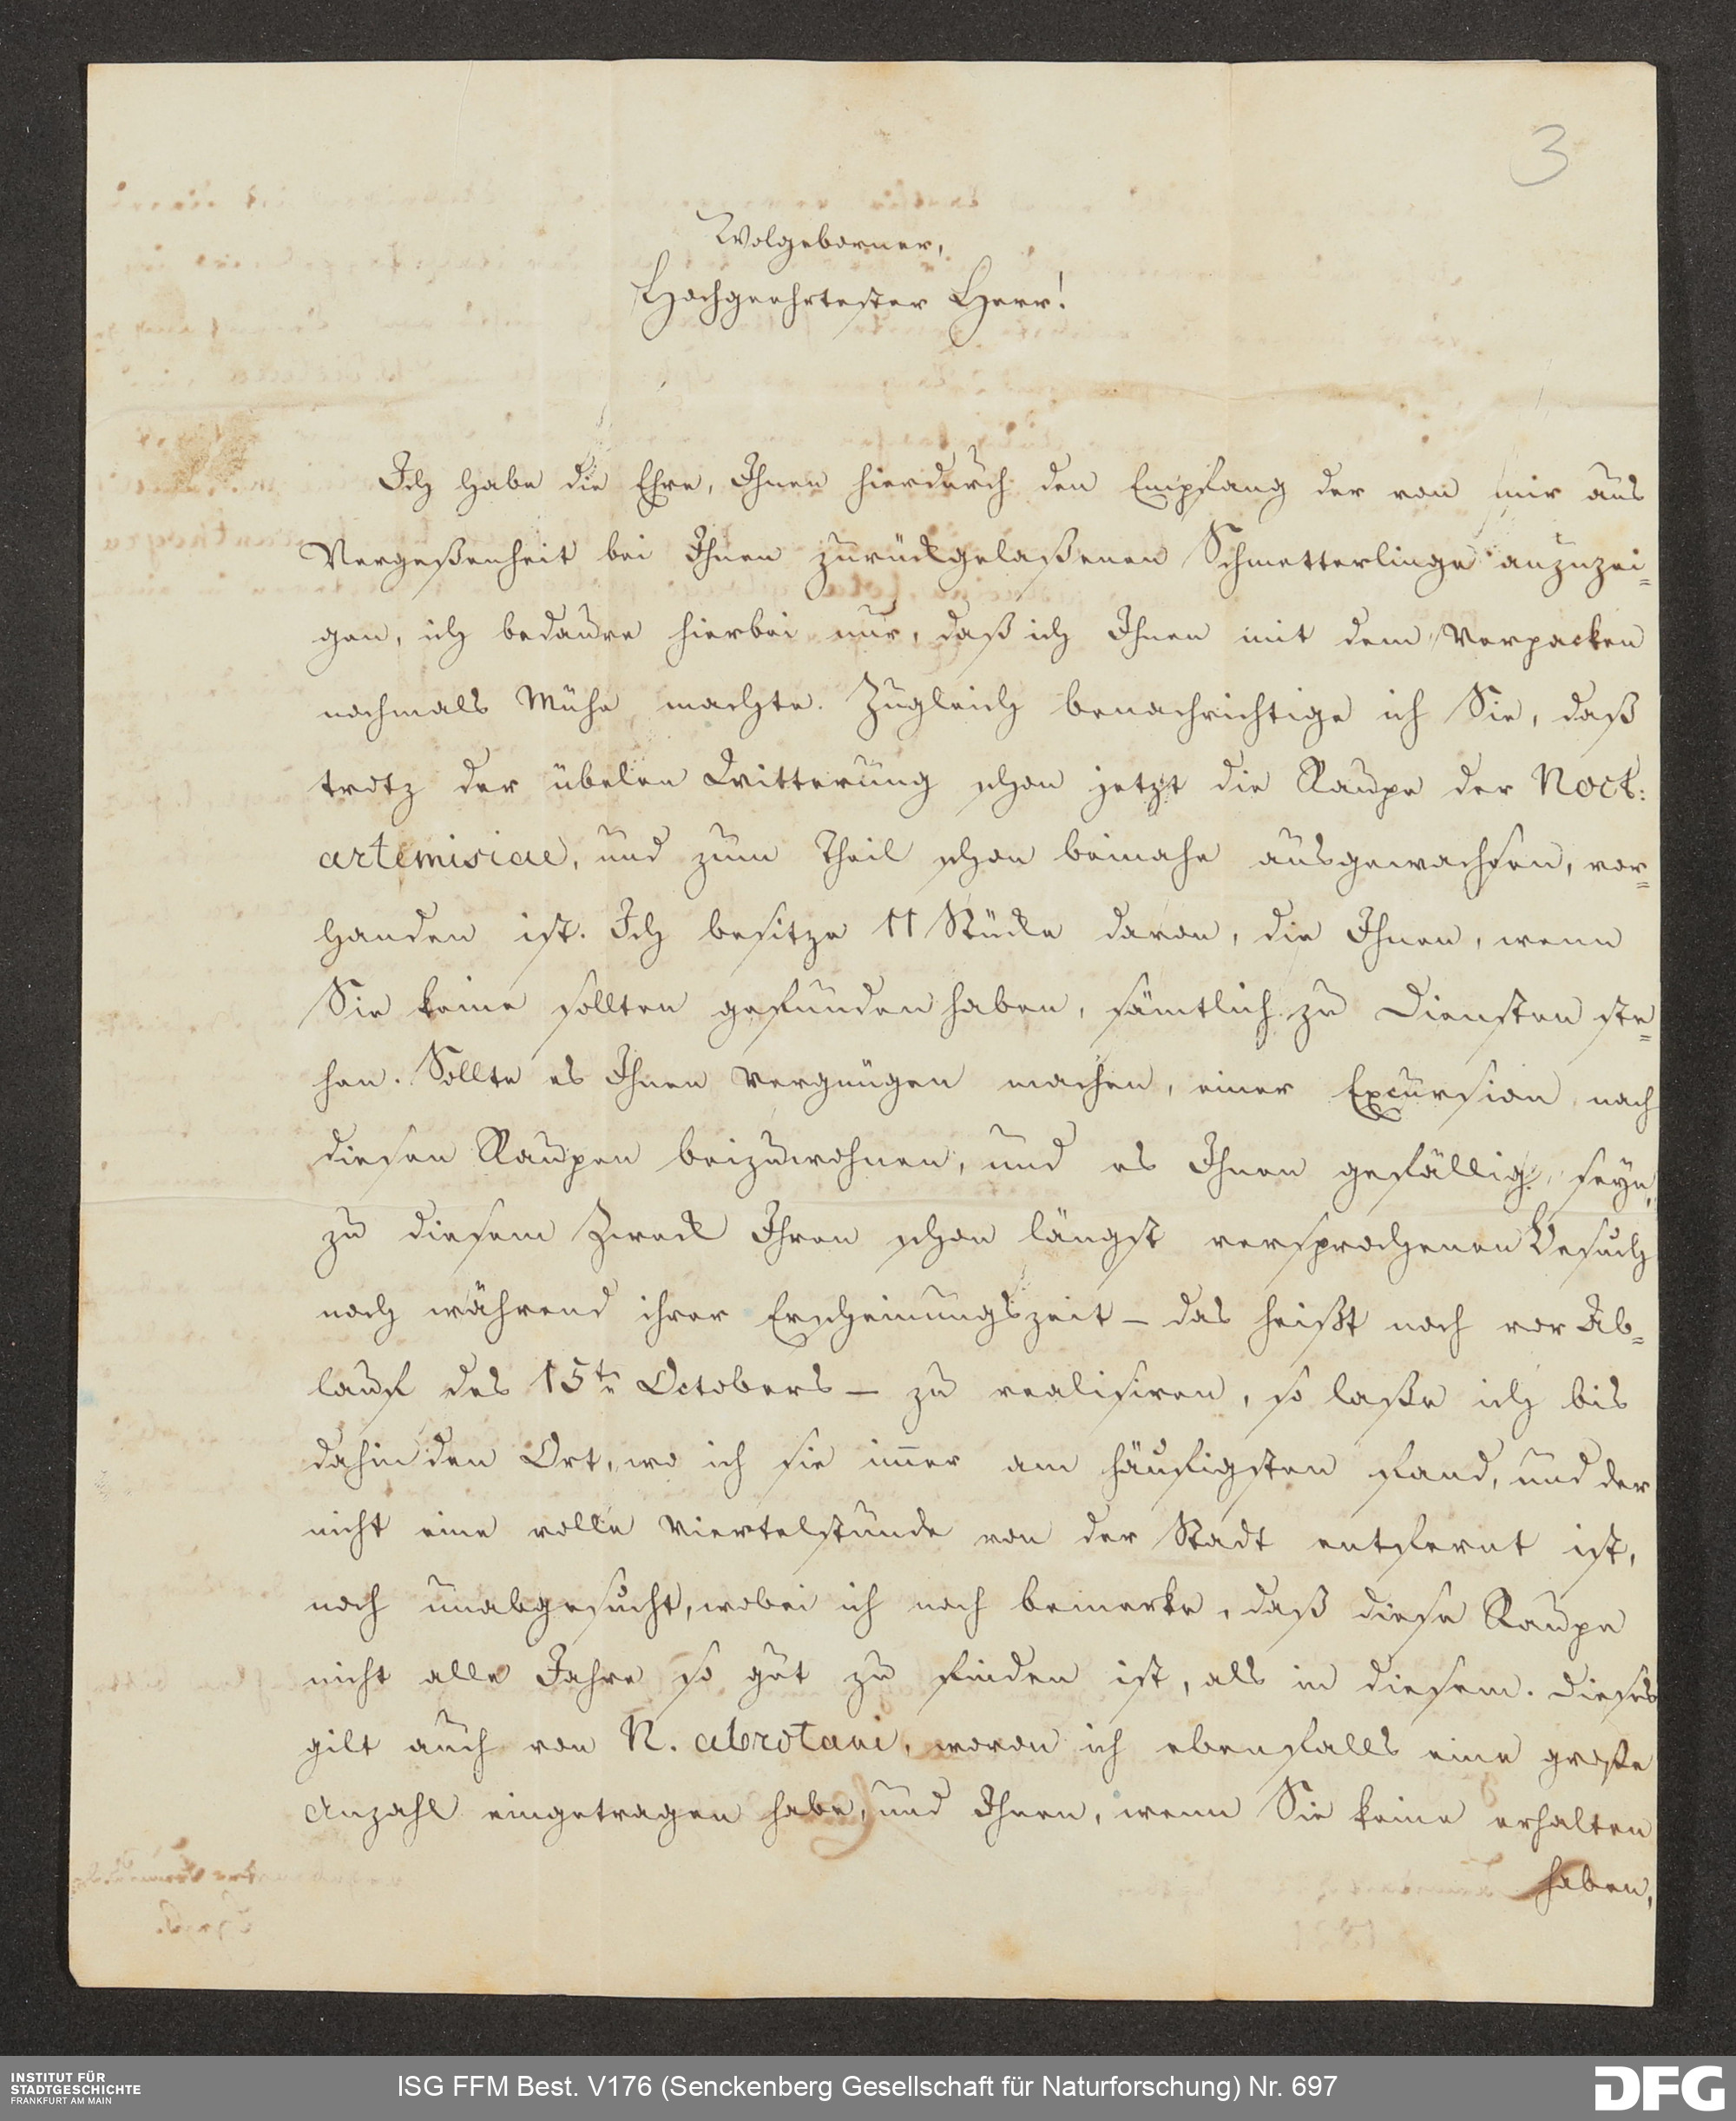 3
Wolgeborner,
Hochgeehrtester Herr!
Ich habe die Ehre, Ihnen hierdurch den Empfang der von mir aus
Vergeßenheit bei Ihnen zurückgelaßenen Schmetterlinge anzuzei=
gen, ich bedaure hierbei nur, daß ich Ihnen mit dem Verpacken
nochmals Mühe machte. Zugleich benachrichtige ich Sie, daß
trotz der übelen Witterung schon jetzt die Raupe der Noct:
artemisiae, und zum Theil schon beinahe ausgewachsen, vor=
handen ist. Ich besitze 11 Stücke davon, die Ihnen, wenn
Sie keine sollten gefunden haben, sämtlich zu Diensten ste=
hen. Sollte es Ihnen Vergnügen machen, einer Excursion nach
diesen Raupen beizuwohnen, und es Ihnen gefällig seyn,
zu diesem Zweck Ihren schon längst versprochenen Besuch
noch während ihrer Erscheinungszeit – das heißt noch vor Ab=
lauf des 15tn Octobers – zu realisiren, so laße ich bis
dahin den Ort, wo ich sie im̅er am häufigsten fand, und der
nicht eine volle Viertelstunde von der Stadt entfernt ist,
noch unabgesucht, wobei ich noch bemerke, daß diese Raupe
nicht alle Jahre so gut zu finden ist, als in diesem. Dieses
gilt auch von N. abrotani, wovon ich ebenfalls eine große
Anzahl eingetragen habe, und Ihnen, wenn Sie keine erhalten
haben,
INSTITUT FÜR
STADTGESCHICHTE
FRANKFURT AM MAIN
ISG FFM Best. V176 (Senckenberg Gesellschaft für Naturforschung) Nr. 697
DFG